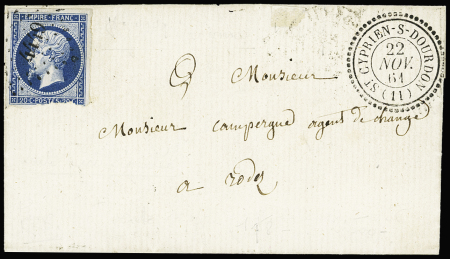 EMPIRE FRANC.
20c POSTES 20c
ST CYPRIEN-S-DOURDON (11)
22
NOV.
61
A Monsieur
Monsieur campergue agent de change
a rodez